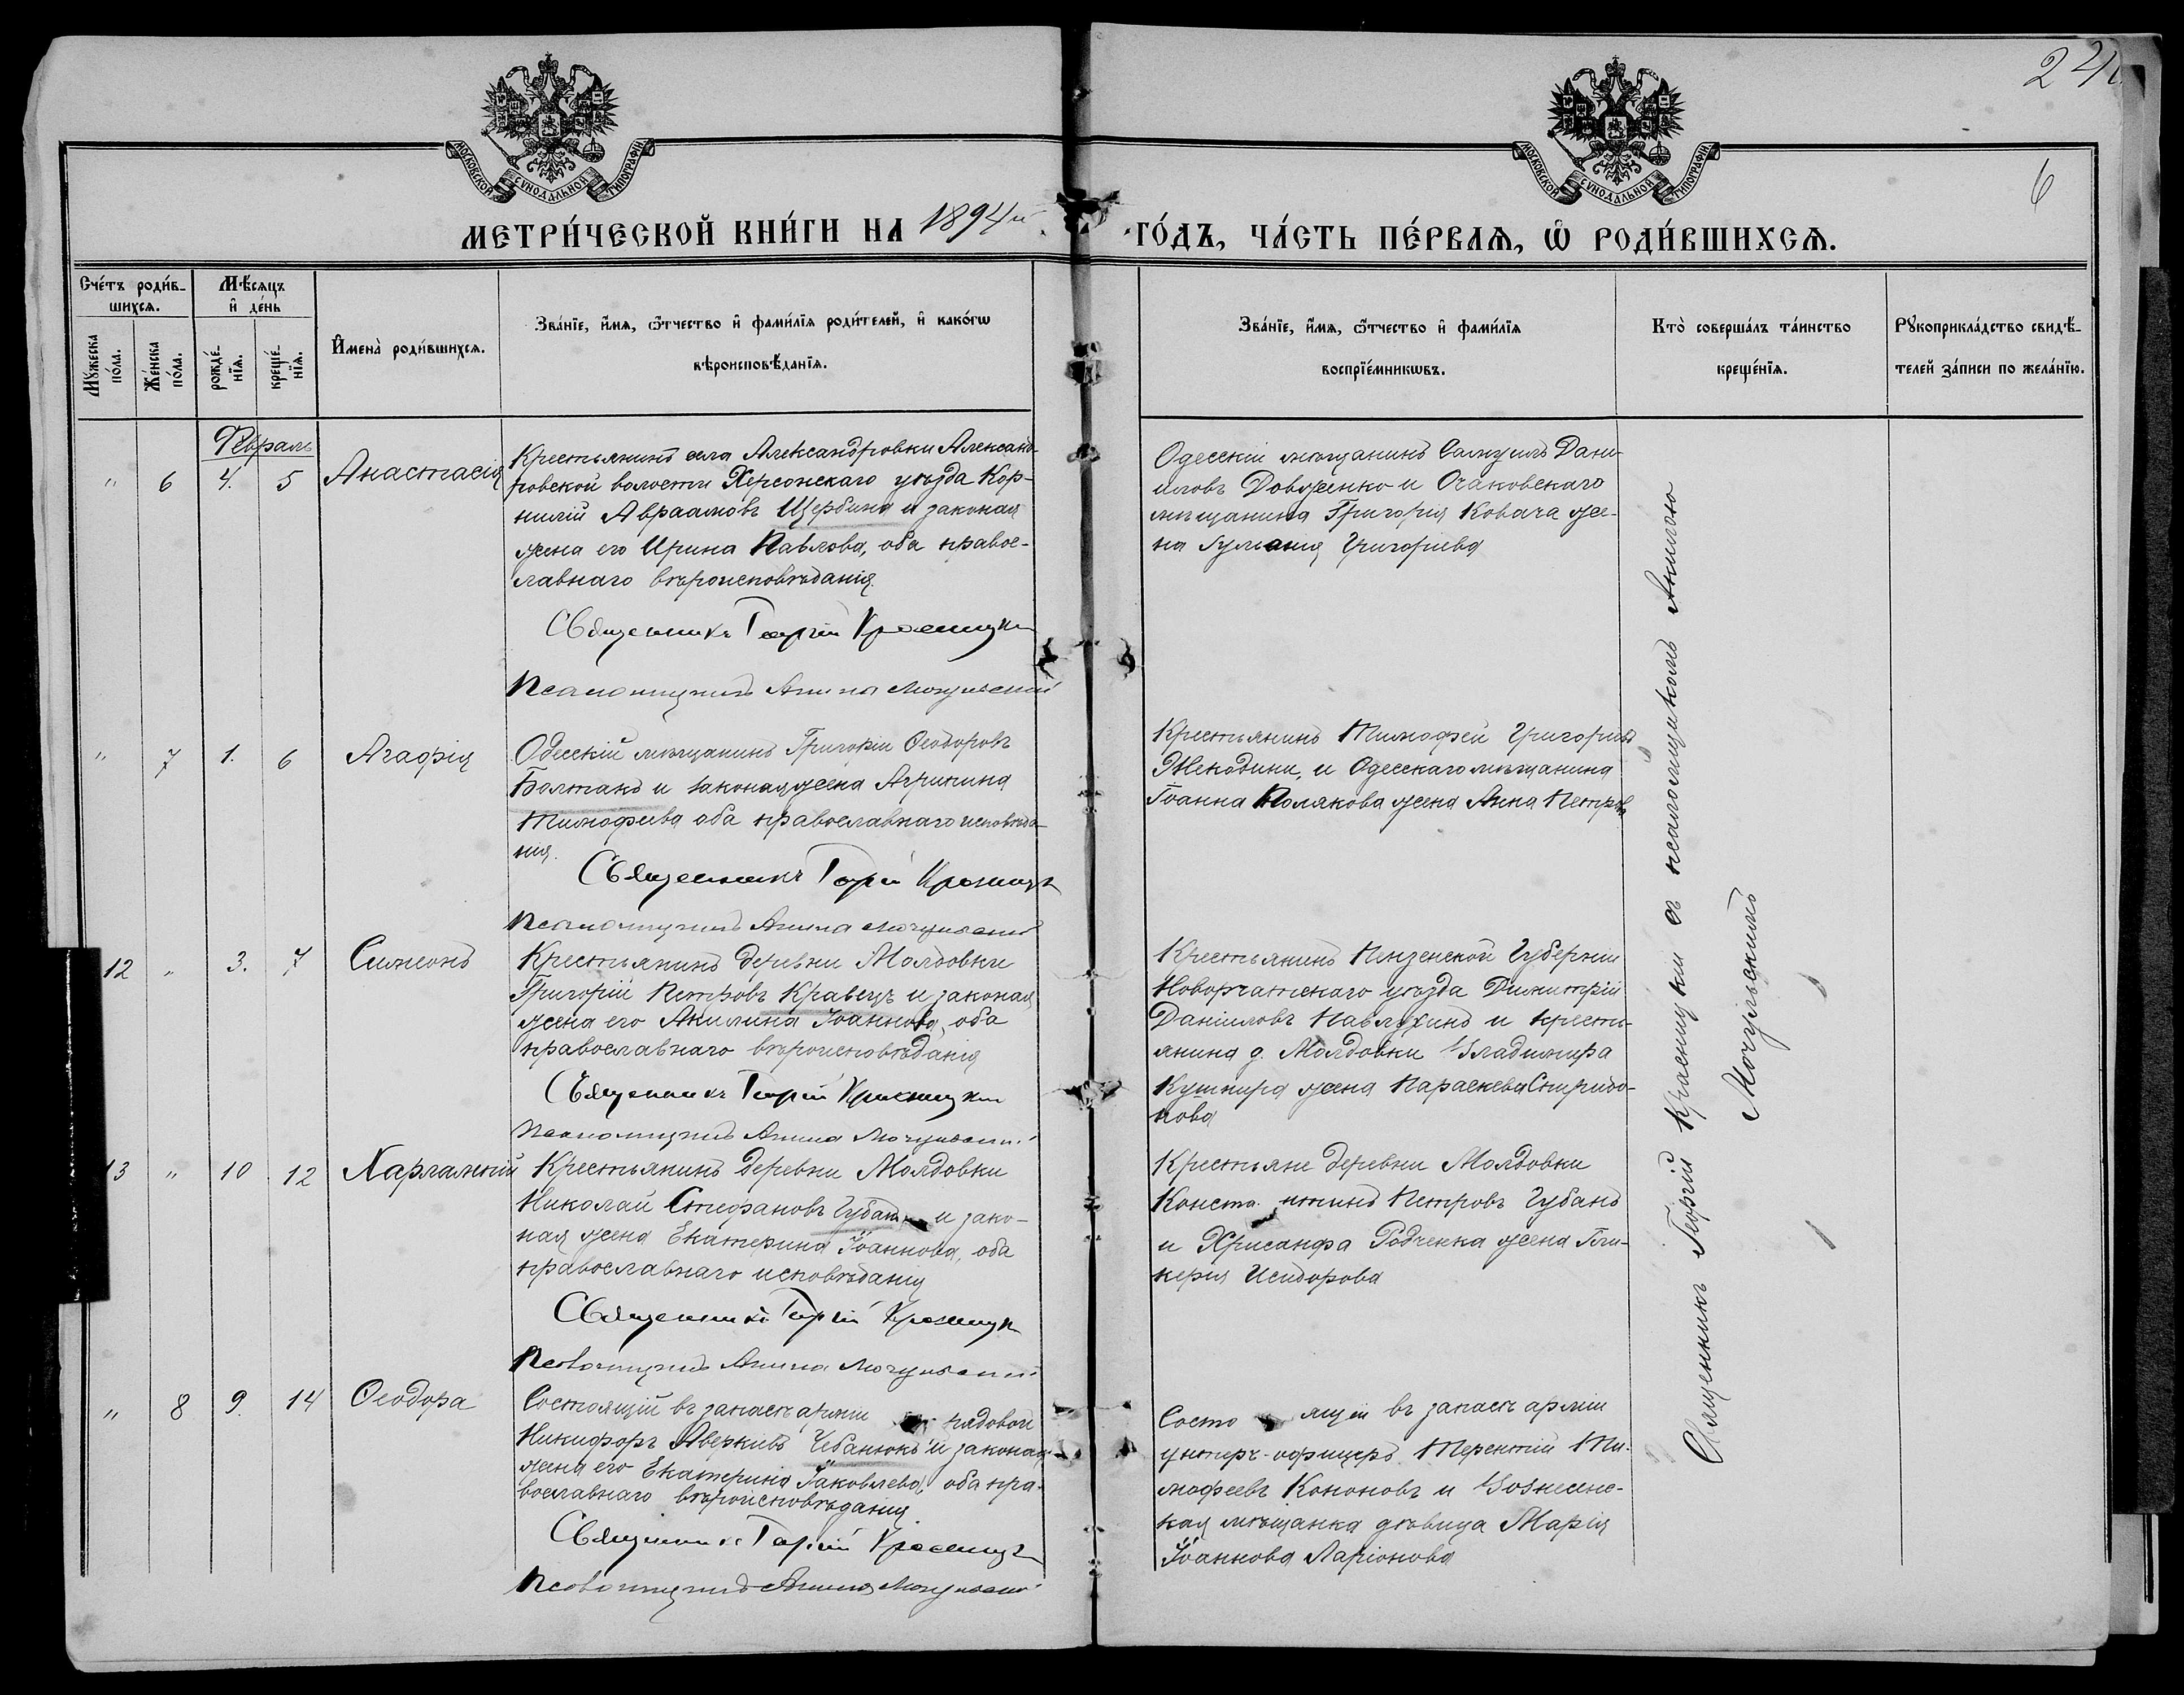 22
6
МОСКОВСКОЙ СУНОДАЛЬНОЙ ТИПОГРАФІИ
МОСКОВСКОЙ СУНОДАЛЬНОЙ ТИПОГРАФІИ
МЕТРИ́ЧЕСКОЙ КНИ́ГИ НА 1894й
ГО́ДЪ, ЧА́СТЬ ПЕ́РВАѦ, Ѡ҆ РОДИ́ВШИХСѦ.
Сче́тъ роди́в-
шихсѧ.
Мꙋ́жеска
по́ла.
Же́нска
по́ла.
Мѣ́сѧцъ
и҆ де́нь
рожде́-
нїѧ.
креще́-
нїѧ.
И҆мена̀ роди́вшихсѧ.
Зва́нїе, и҆́мѧ, ѻ҆́тчество и҆ фами́лїѧ роди́телей, и҆ како́гѡ
вѣроисповѣ́данїѧ.
Зва́нїе, и҆́мѧ, ѻ҆́тчество и҆ фами́лїѧ
воспрїе́мникѡвъ.
Кто̀ соверша́лъ та́инство
креще́нїѧ.
Рꙋкоприкла́дство свидѣ́-
телей за́писи по жела́нїю.
Февраль
" 6 4. 5 Анастасія
Крестьянинъ села Александровки Александ-
ровской волости Херсонскаго уѣзда Кор-
нилій Авраамовъ Щербина и законая
жена его Ирина Павлова, оба правос-
лавнаго вѣроисповѣданія.
Священникъ Георгій Красницкій
Псаломщикъ Акила Могульскій
Одесскій мѣщанинъ Самуилъ Дани-
иловъ Довженко и Очаковскаго
мѣщанина Григорія Ковача же-
на Іуліанія Григориева
" 7 1. 6 Агафія
Одесскій мѣщанинъ Григорій Ѳеодоровъ
Болтакъ и законая жена Агрипина
Тимофеева оба православнаго исповѣда-
нія.
Священникъ Георгій Красницкій
Псаломщикъ Акила Могульскій
Крестьянинъ Тимофей Григориевъ
и Одесскаго мѣщанина
Іоанна Полякова жена Анна Петрова
12 " 3. 7 Симеонъ
Крестьянинъ деревни Молдовки
Григорій Петровъ Кравецъ и законая
жена его Акилина Іоаннова, оба
православнаго вѣроисповѣданія
Священникъ Георгій Красницкій
Псаломщикъ Акила Могульскій
Крестьянинъ Пензенской Губерніи
уѣзда Димитрій
Даніиловъ Павлухинъ и кресть-
янина д. Молдовки Владимира
Кушнира жена Параскева Спиридо-
нова
13 " 10 12 Харлампій
Крестьянинъ деревни Молдовки
Николай Стефановъ Губанъ и зако-
ная жена Екатерина Іоаннова, оба
православнаго исповѣданія
Священникъ Георгій Красницкій
Псаломщикъ Акила Могульскій
Крестьяне деревни Молдовки
Константинъ Петровъ Губанъ
и Хрисанфа Родченка жена Гли-
керия Исидорова
" 8 9. 14 Ѳеодора
Состоящій въ запасѣ арміи рядовой
Никифоръ Аверкиевъ Чебанюкъ и законая
жена его Екатерина Іаковлева, оба пра-
вославнаго вѣроисповѣданія.
Священникъ Георгій Красницкій
Псаломщикъ Акила Могульскій
Состоящій въ запасѣ арміи
унтеръ-офицеръ Терентій Ти-
мофеевъ Кононовъ и Вознесенс-
кая мѣщанка дѣвица Марія
Іоаннова Ларіонова
Священникъ Георгій Красницкій съ псаломщикомъ Акилою
Могульскимъ